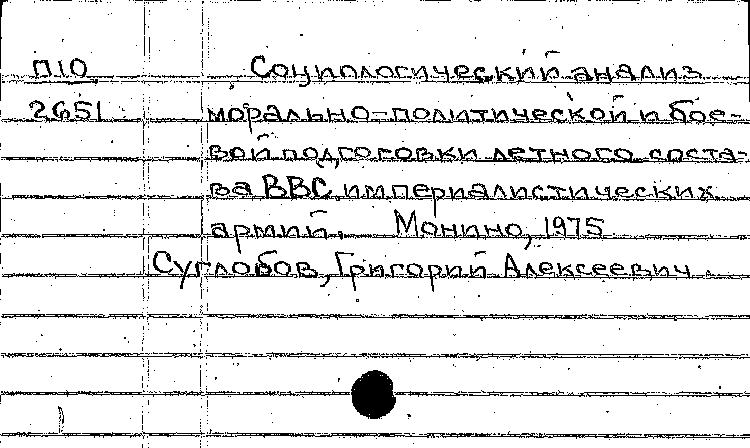 П10 Социологический анализ
2651 морально-политической и бое-
вой подготовки летного соста-
ва ВВС империалистических
армий. Монино, 1975
Суглобов, Григорий Алексеевич.